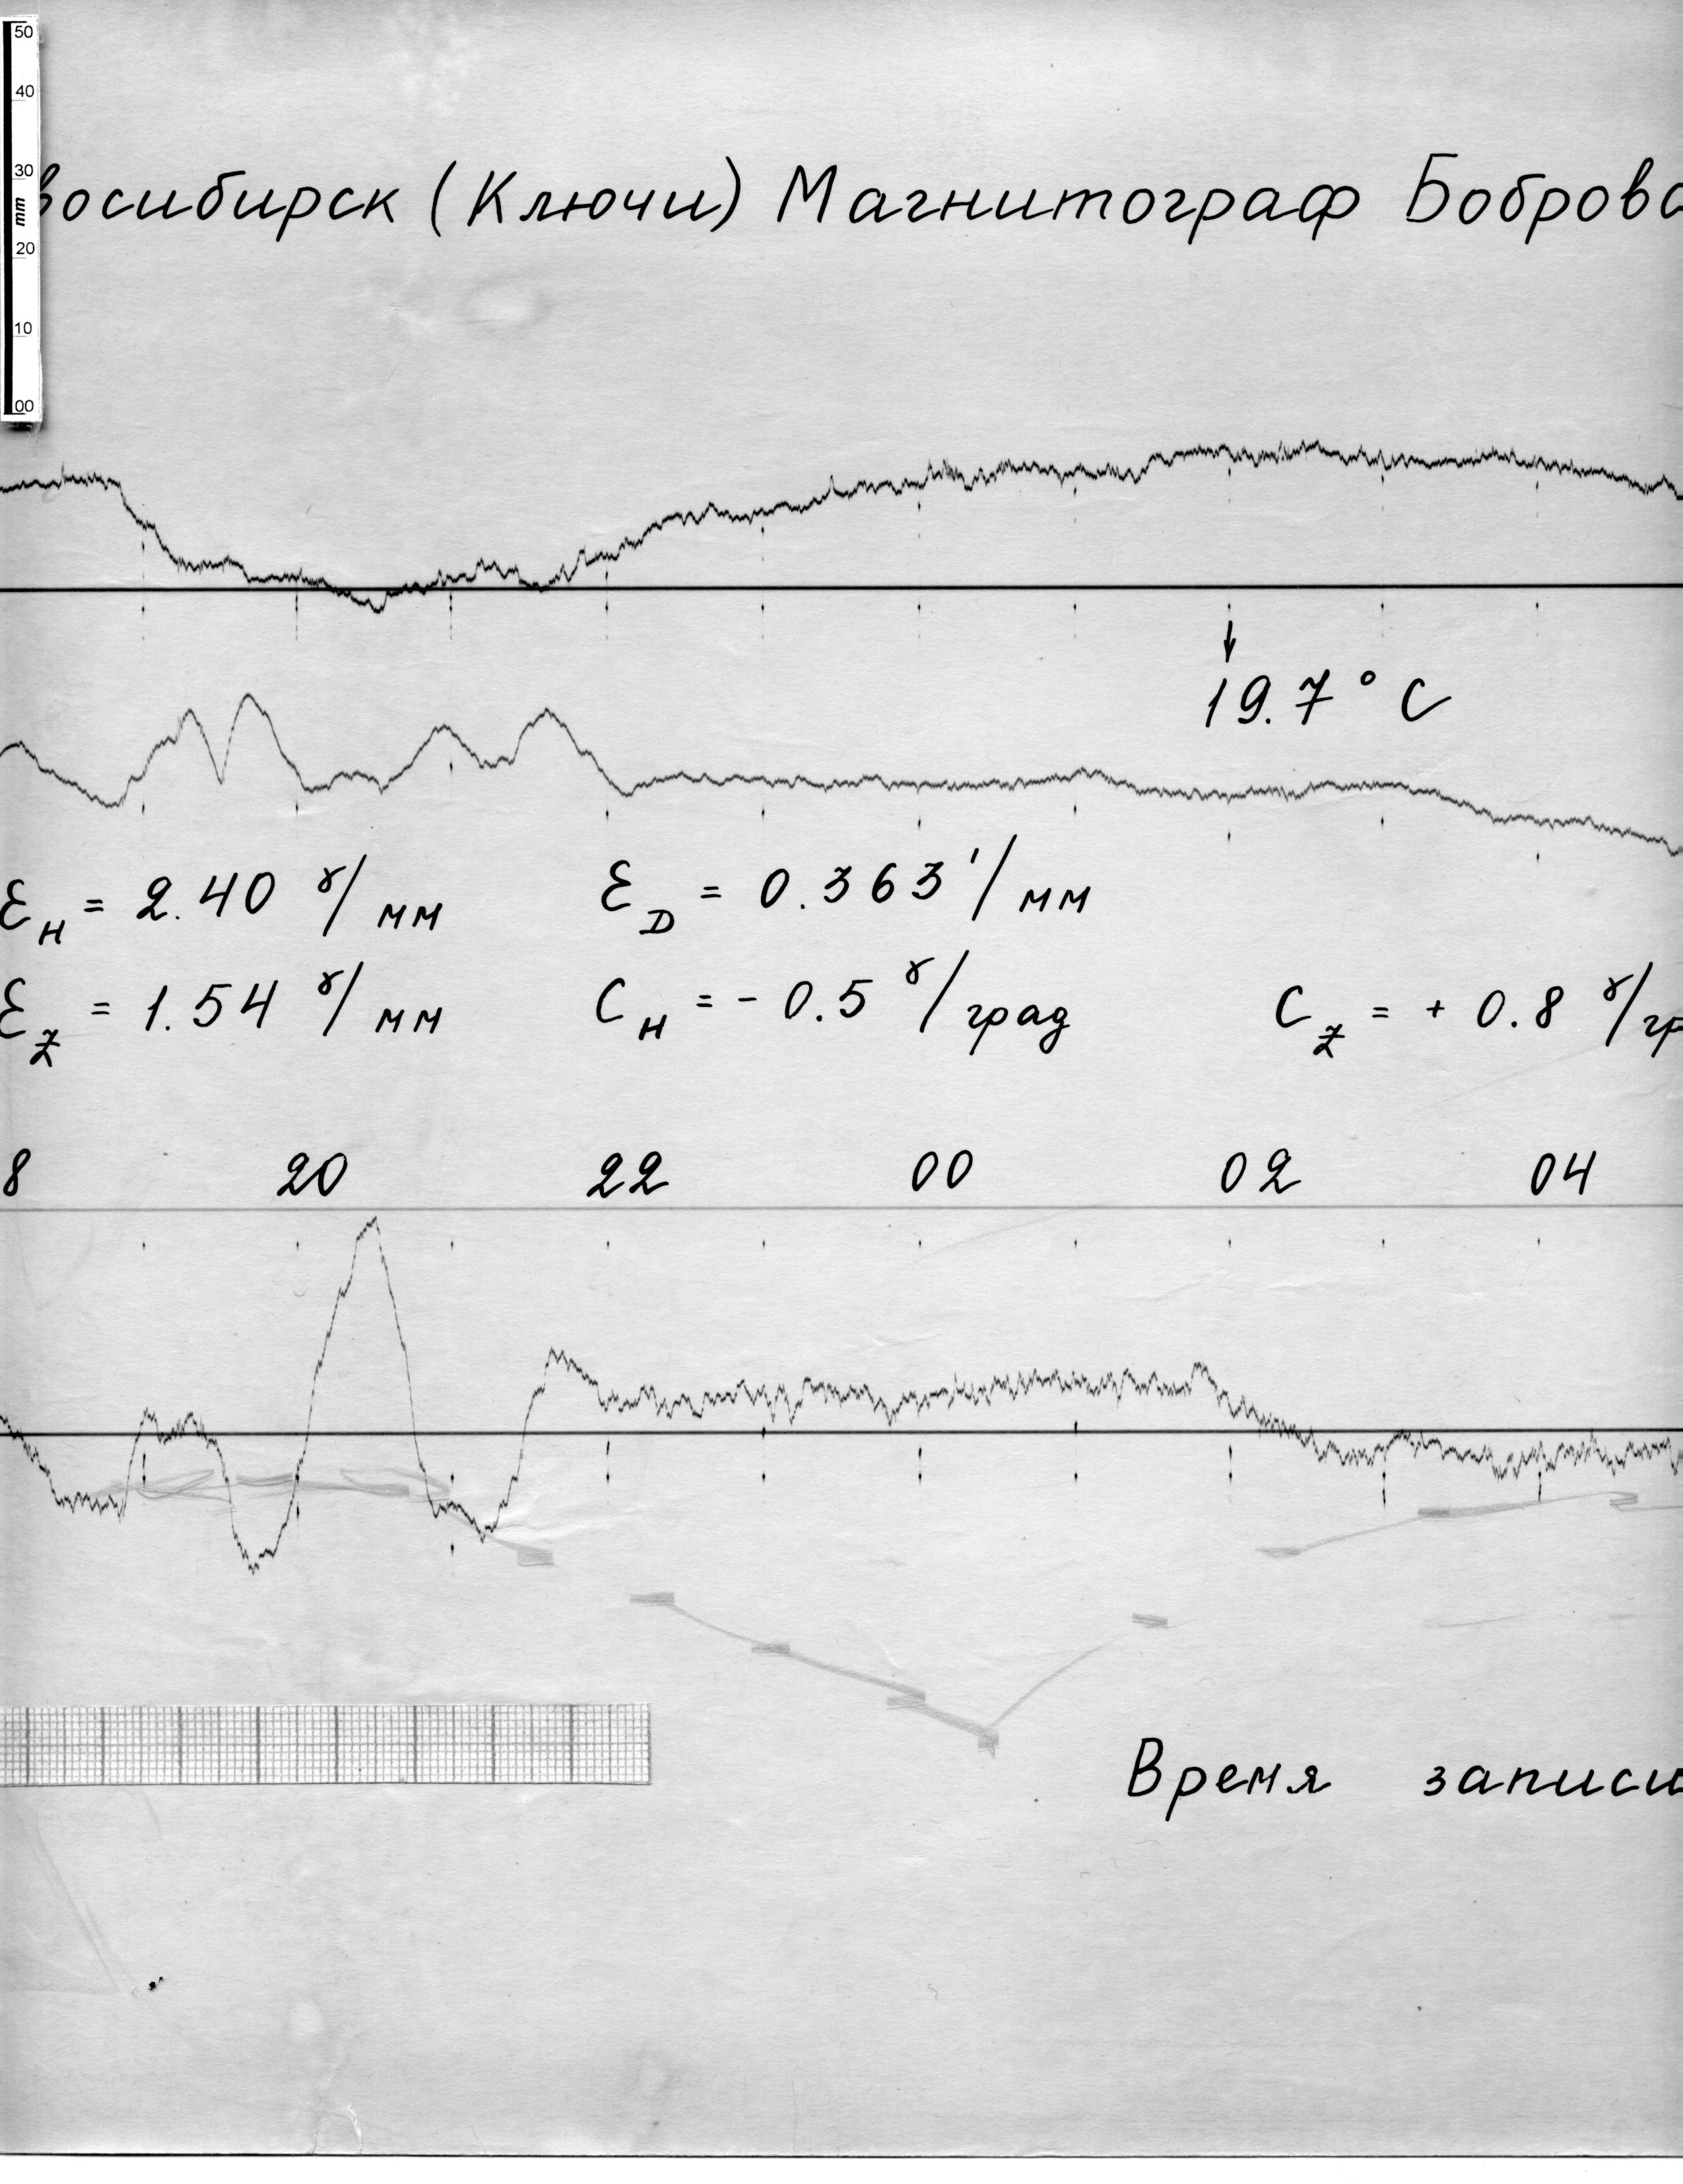 50
40
30
mm
20
10
00
восибирск (Ключи) Магнитограф Боброва
19.7° C
Ɛ_H = 2.40 γ/мм Ɛ_D = 0.363'/мм
Ɛ_Z = 1.54 γ/мм C_H = - 0.5 γ/град C_Z = + 0.8 γ/гр
8 20 22 00 02 04
Время записи